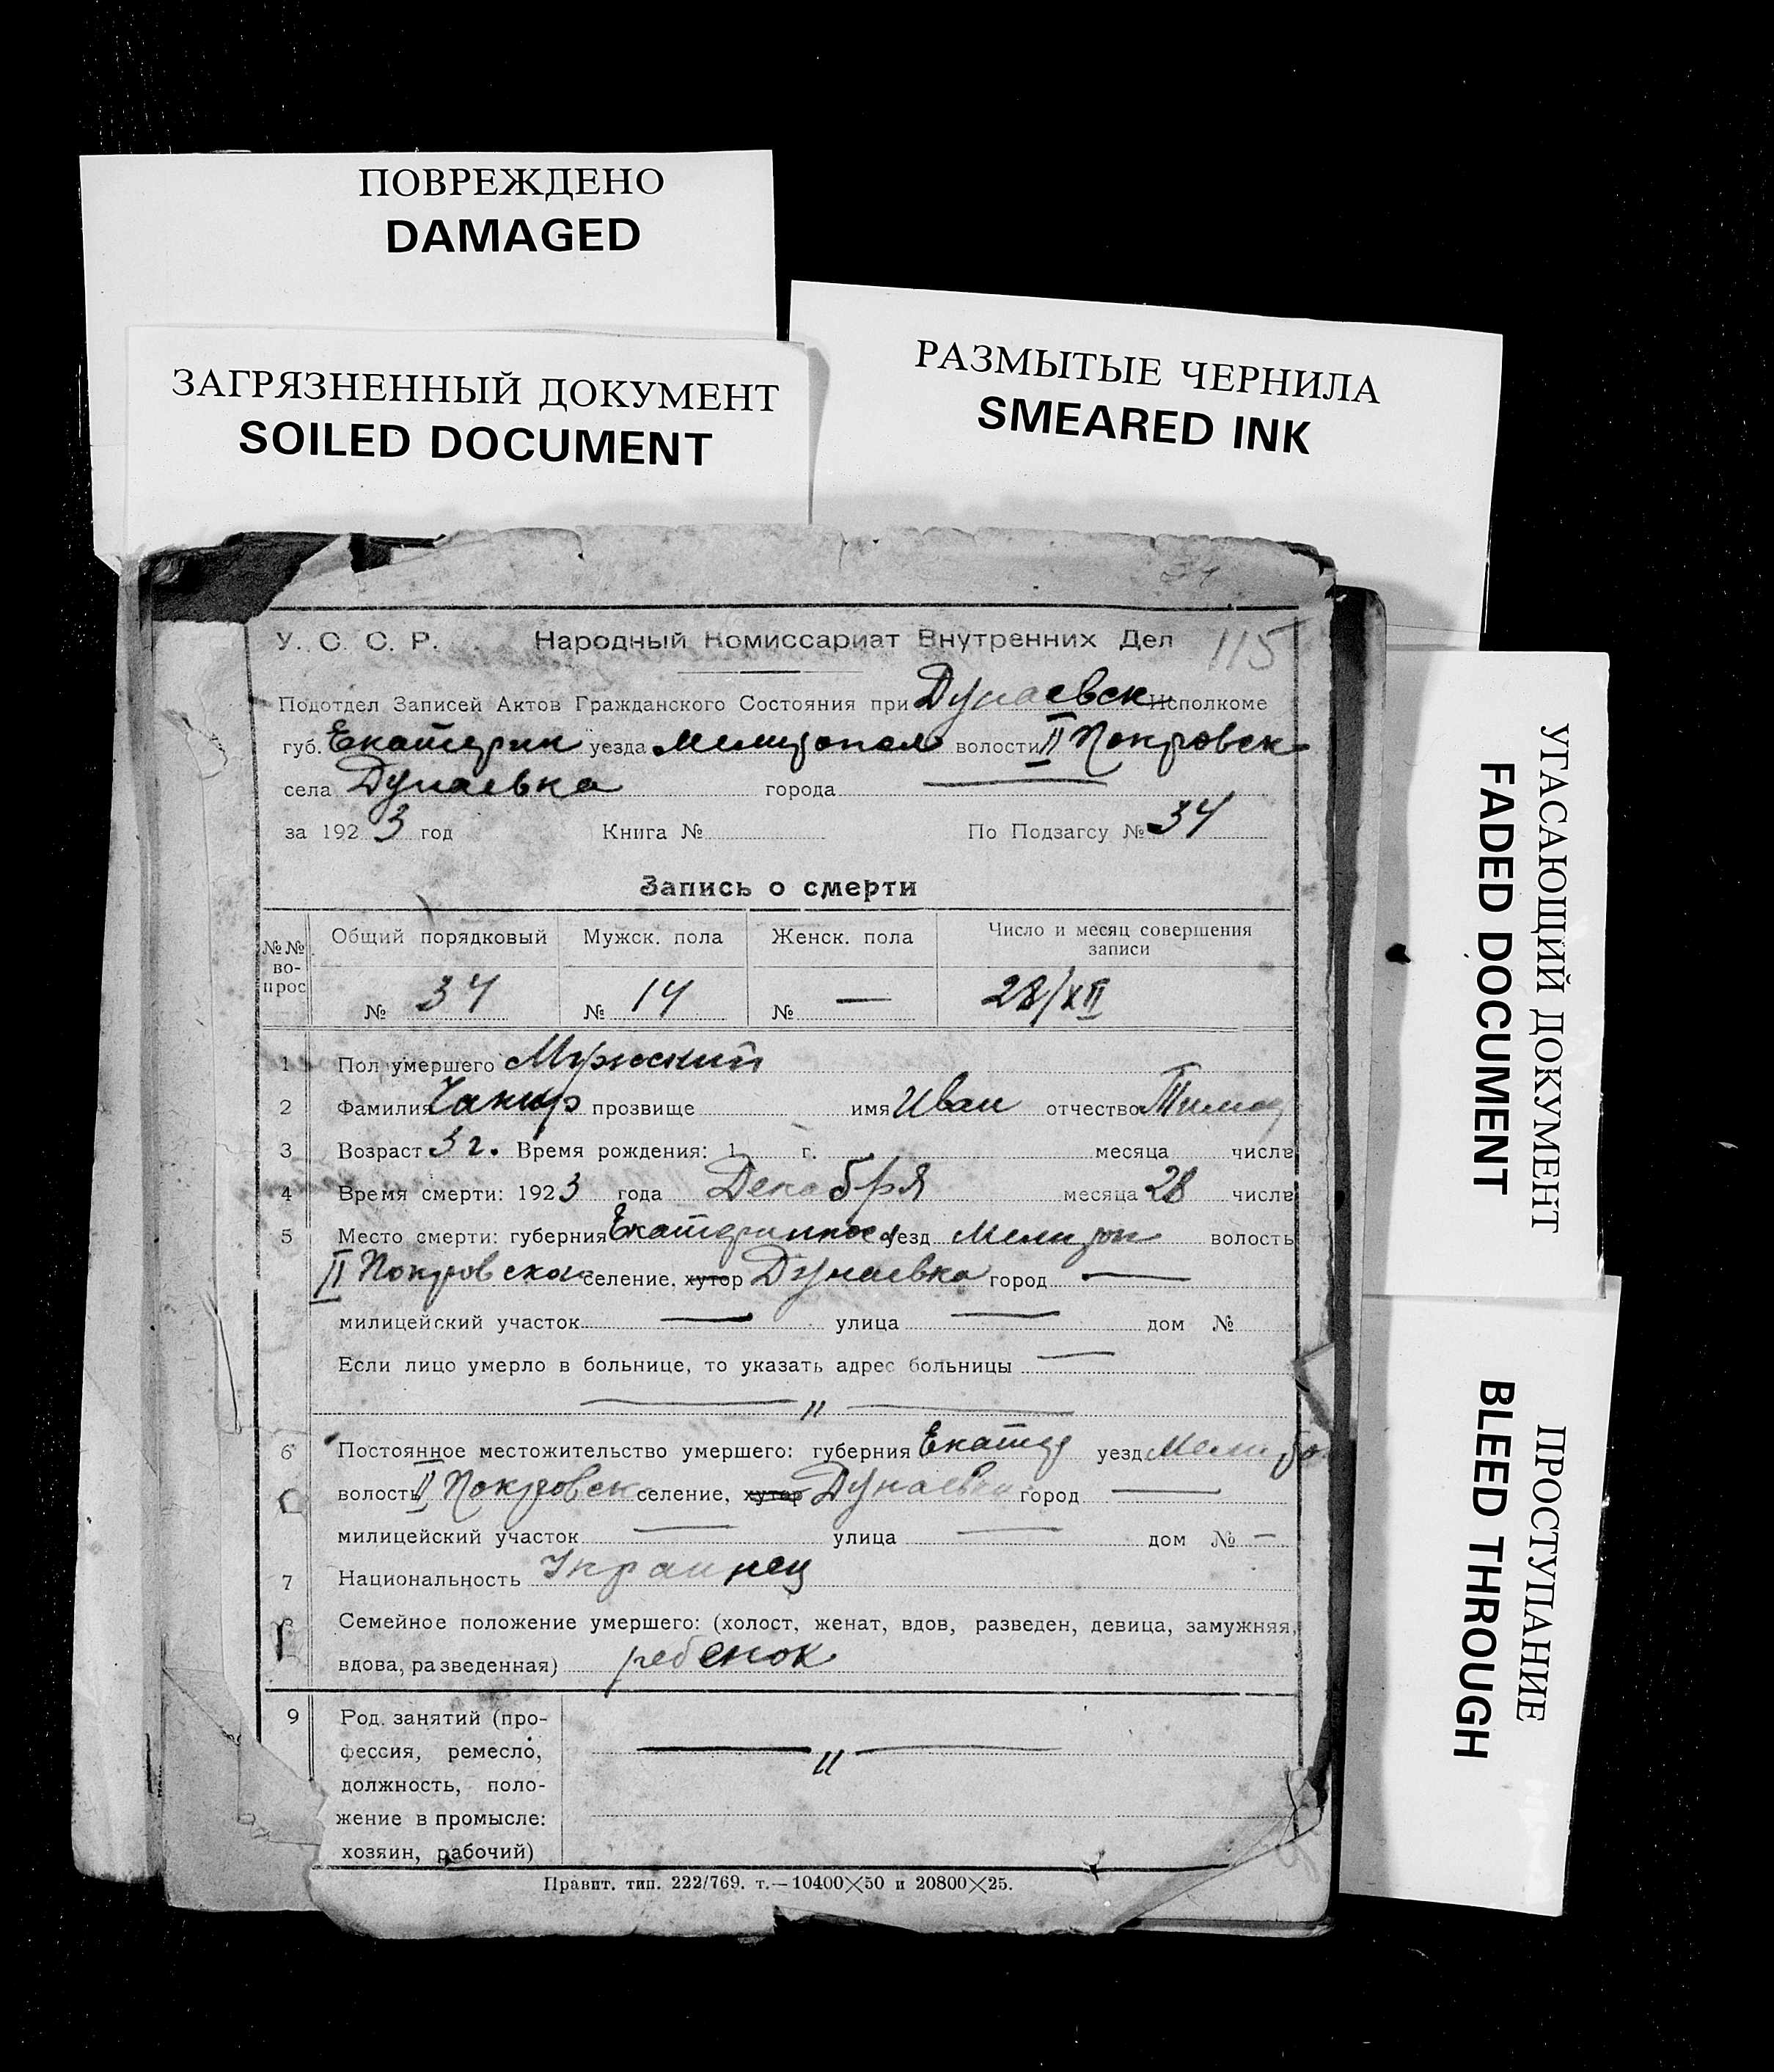 ПОВРЕЖДЕНО
DAMAGED
ЗАГРЯЗНЕННЫЙ ДОКУМЕНТ
SOILED DOCUMENT
РАЗМЫТЫЕ ЧЕРНИЛА
SMEARED INK
У. С. С. Р. Народный Комиссариат Внутренних Дел 115
Подотдел Записей Актов Гражданского Состояния при Дунаевск Исполкоме
губ. Екатерин уезда Мелитопол волости II Покровск
села Дунаевка города —
за 1923 год Книга № По Подзагсу № 34
Запись о смерти
№№ вопрос Общий порядковый Мужск. пола Женск. пола Число и месяц совершения записи
№ 34 № 14 № — 28/XII
1 Пол умершего Мужский
2 Фамилия Чакир прозвище имя Иван отчество Тимоф
3 Возраст 3 г. Время рождения: 1 г. месяца числа
4 Время смерти: 1923 года Декабря месяца 28 числа
5 Место смерти: губерния Екатеринос уезд Мелитоп волость
II Покровская селение, хутор Дунаевка город —
милицейский участок — улица — дом №
Если лицо умерло в больнице, то указать адрес больницы —
— „ —
6 Постоянное местожительство умершего: губерния Екатер уезд Мелито
волость II Покровск селение, хутор Дунаевка город —
милицейский участок — улица — дом № —
7 Национальность Украинец
8 Семейное положение умершего: (холост, женат, вдов, разведен, девица, замужняя,
вдова, разведенная) ребенок
9 Род занятий (про-
фессия, ремесло, — „ —
должность, поло-
жение в промысле:
хозяин, рабочий)
Правит. тип. 222/769. т.—10400×50 и 20800×25.
УГАСАЮЩИЙ ДОКУМЕНТ
FADED DOCUMENT
ПРОСТУПАНИЕ
BLEED THROUGH